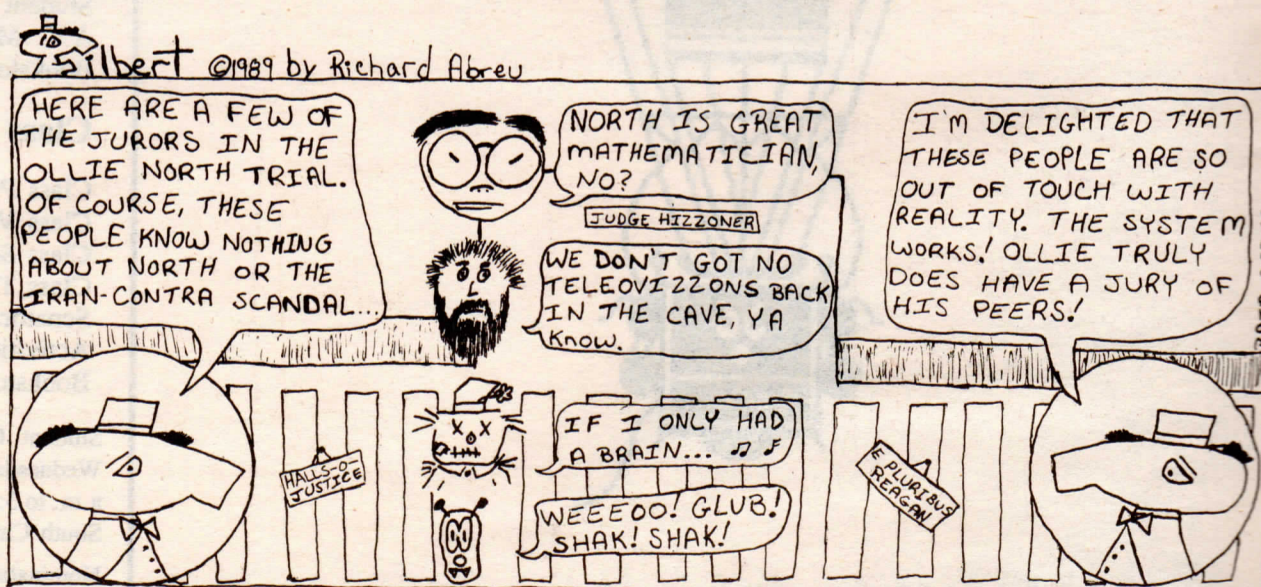 Silbert ©1989 by Richard Abreu
HERE ARE A FEW OF
THE JURORS IN THE
OLLIE NORTH TRIAL.
OF COURSE, THESE
PEOPLE KNOW NOTHING
ABOUT NORTH OR THE
IRAN-CONTRA SCANDAL...
HALLS-O-
JUSTICE
NORTH IS GREAT
MATHEMATICIAN,
NO?
JUDGE HIZZONER
WE DON'T GOT NO
TELEOVIZZONS BACK
IN THE CAVE, YA
KNOW.
IF I ONLY HAD
A BRAIN... ♫ ♪
WEEEOO! GLUB!
SHAK! SHAK!
I'M DELIGHTED THAT
THESE PEOPLE ARE SO
OUT OF TOUCH WITH
REALITY. THE SYSTEM
WORKS! OLLIE TRULY
DOES HAVE A JURY OF
HIS PEERS!
E PLURIBUS
REAGAN